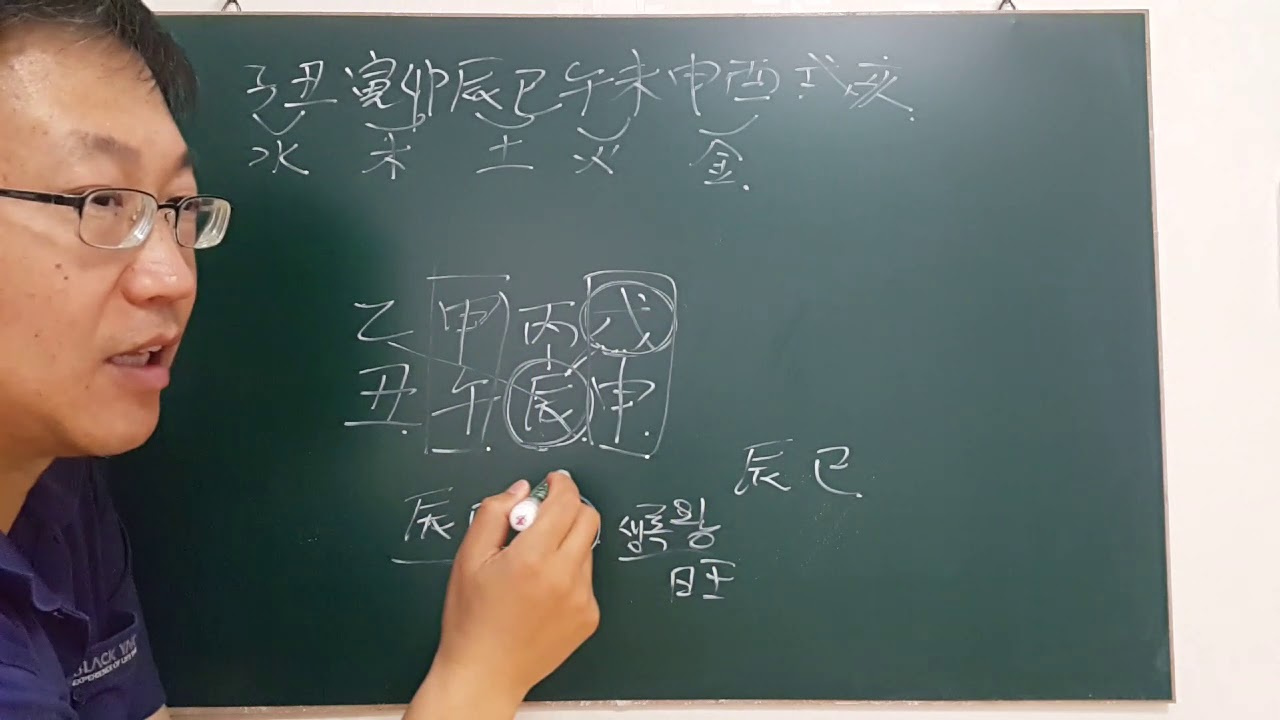 子丑寅卯辰巳午未申酉戌亥
水 木 土 火 金
乙甲丙戊
丑午辰申
辰巳
辰
생록왕
旺
BLACK YAK
EXPERIENCE OF